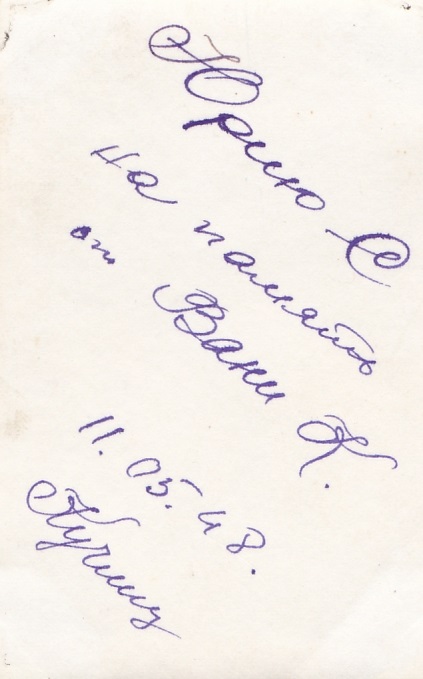 Юрию С
на память
от Вани К.
11.05.48.